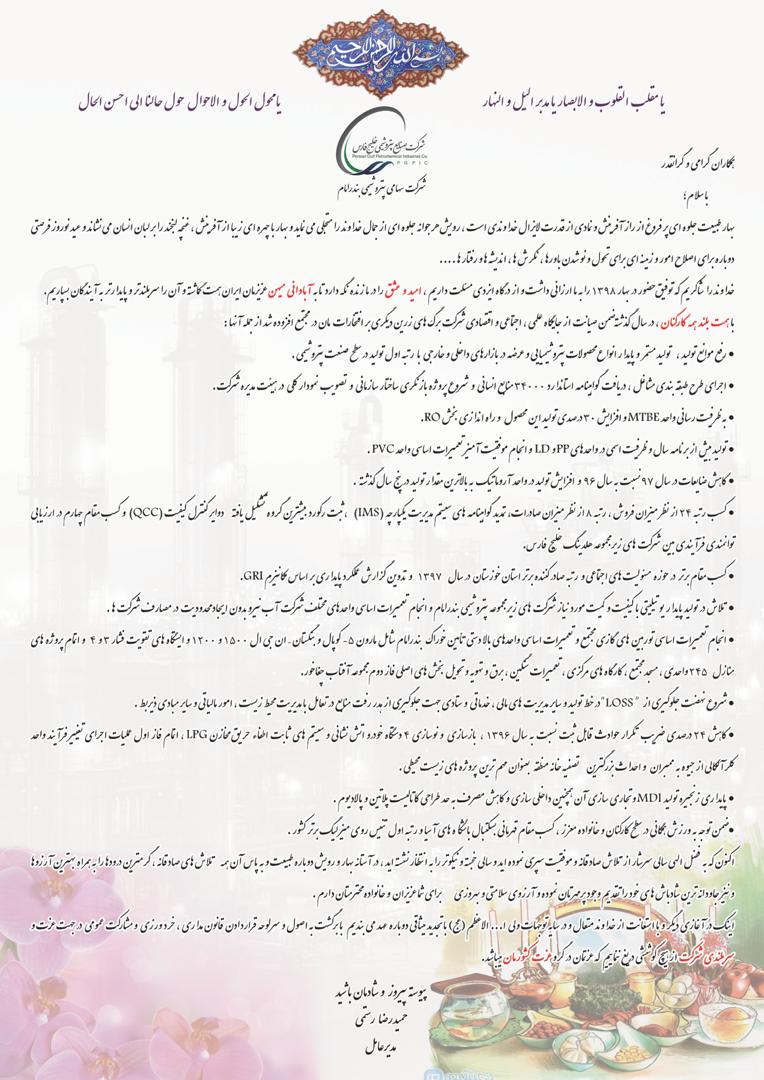 بسم الله الرحمن الرحیم
یا مقلب القلوب و الابصار یا مدبر الیل و النهار
یا محول الحول و الاحوال حول حالنا الی احسن الحال
شرکت صنایع پتروشیمی خلیج فارس
Persian Gulf Petrochemical Industries Co
P G P I C
شرکت سهامی پتروشیمی بندرامام
همکاران گرامی و گرانقدر
با سلام؛
بهار طبیعت جلوه ای پر فروغ از راز آفرینش و نمادی از قدرت لایزال خداوندی است ، رویش هر جوانه جلوه ای از جمال خداوند را متجلی می نماید و بهار با چهره ای زیبا از آفرینش ، غنچه لبخند را بر لبان انسان می نشاند و عید نوروز فرصتی
دوباره برای اصلاح امور و زمینه ای برای تحول و نو شدن باورها ، نگرش ها ، اندیشه ها و رفتارها....
خداوند را شاکریم که توفیق حضور در بهار ۱۳۹۸ را به ما ارزانی داشت و از درگاه ایزدی مسئلت داریم ، امید و عشق را در ما زنده نگه دارد تا به آبادانی میهن عزیزمان ایران همت گماشته و آن را سربلندتر و پایدارتر به آیندگان بسپاریم.
با همت بلند همه کارکنان ، در سال گذشته ضمن صیانت از جایگاه علمی ، اجتماعی و اقتصادی شرکت برگ های زرین دیگری بر افتخارات مان در مجتمع افزوده شد از جمله آنها :
● رفع موانع تولید ، تولید مستمر و پایدار انواع محصولات پتروشیمیایی و عرضه در بازارهای داخلی و خارجی با رتبه اول تولید در سطح صنعت پتروشیمی.
● اجرای طرح طبقه بندی مشاغل ، دریافت گواهینامه استاندارد ۳۴۰۰۰ منابع انسانی و شروع پروژه بازنگری ساختار سازمانی و تصویب نمودار کلی در هیئت مدیره شرکت.
● به ظرفیت رسانی واحد MTBE و افزایش ۳۰ درصدی تولید این محصول و راه اندازی بخش RO.
● تولید بیش از برنامه سال و ظرفیت اسمی در واحدهای PP و LD و انجام موفقیت آمیز تعمیرات اساسی واحد PVC .
● کاهش ضایعات در سال ۹۷ نسبت به سال ۹۶ و افزایش تولید در واحد آروماتیک به بالاترین مقدار تولید در پنج سال گذشته .
● کسب رتبه ۲۴ از نظر میزان فروش ، رتبه ۸ از نظر میزان صادرات، تمدید گواهینامه های سیستم مدیریت یکپارچه (IMS) ، ثبت رکورد بیشترین گروه تشکیل یافته دوایر کنترل کیفیت (QCC) و کسب مقام چهارم در ارزیابی
توانمندی فرآیندی بین شرکت های زیرمجموعه هلدینگ خلیج فارس.
● کسب مقام برتر در حوزه مسئولیت های اجتماعی و رتبه صادرکننده برتر استان خوزستان در سال ۱۳۹۷ و تدوین گزارش عملکرد پایداری بر اساس مکانیزم GRI.
● تلاش در تولید پایدار یوتیلیتی با کیفیت و کمیت مورد نیاز شرکت های زیر مجموعه پتروشیمی بندرامام و انجام تعمیرات اساسی واحدهای مختلف شرکت آب نیرو بدون ایجاد محدودیت در مصارف شرکت ها .
● انجام تعمیرات اساسی توربین های گازی مجتمع و تعمیرات اساسی واحدهای بالادستی تامین خوراک بندرامام شامل مارون ۵- کوپال و بینگستان- ان جی ال ۱۵۰۰ و ۱۲۰۰ و ایستگاه های تقویت فشار ۳ و ۴ و اتمام پروژه های
منازل ۲۴۵ واحدی ، مسجد مجتمع ، کارگاه های مرکزی ، تعمیرات سنگین ، برق و تهویه و تحویل بخش های اصلی فاز دوم مجموعه آفتاب چغاخور.
● شروع نهضت جلوگیری از " LOSS" در خط تولید و سایر مدیریت های مالی ، خدماتی و ستادی جهت جلوگیری از هدر رفت منابع در تعامل با مدیریت محیط زیست ، امور مالیاتی و سایر مبادی ذیربط .
● کاهش ۲۴ درصدی ضریب تکرار حوادث قابل ثبت نسبت به سال ۱۳۹۶ ، بازسازی و نوسازی ۴ دستگاه خودرو آتش نشانی و سیستم های ثابت اطفاء حریق مخازن LPG ، اتمام فاز اول عملیات اجرای تغییر فرآیند واحد
کلرآلکالی از جیوه به ممبران و احداث بزرگترین تصفیه خانه منطقه بعنوان مهم ترین پروژه های زیست محیطی .
● پایداری زنجیره تولید MDI و تجاری سازی آن همچنین داخلی سازی و کاهش مصرف به حد طراحی کاتالیست پلاتین و پالادیوم .
● ضمن توجه به ورزش همگانی در سطح کارکنان و خانواده معزز ، کسب مقام قهرمانی بسکتبال باشگاه های آسیا و رتبه اول تنیس روی میز لیگ برتر کشور .
اکنون که به فضل الهی سالی سرشار از تلاش صادقانه و موفقیت سپری نموده اید و سالی خجسته و نیکوتر را به انتظار نشسته اید ، در آستانه بهار و رویش دوباره طبیعت و به پاس آن همه تلاش های صادقانه ، گرمترین درودها را به همراه بهترین آرزوها
و نیز جاودانه ترین شادباش های خود را تقدیم وجود پرمهرتان نموده و آرزوی سلامتی و سروری برای شما عزیزان و خانواده محترمتان دارم .
اینک در آغازی دیگر و با استعانت از خداوند متعال و در سایه توجهات ولی ا... الاعظم (عج) با تجدید میثاقی دوباره عهد می بندیم با برگشت به اصول و سرلوحه قرار دادن قانون مداری ، خردورزی و مشارکت عمومی در جهت عزت و
سربلندی شرکت از هیچ کوششی دریغ ننماییم که عزتمان در گرو عزت کشورمان میباشد.
پیوسته پیروز و شادمان باشید
حمیدرضا رستمی
مدیرعامل